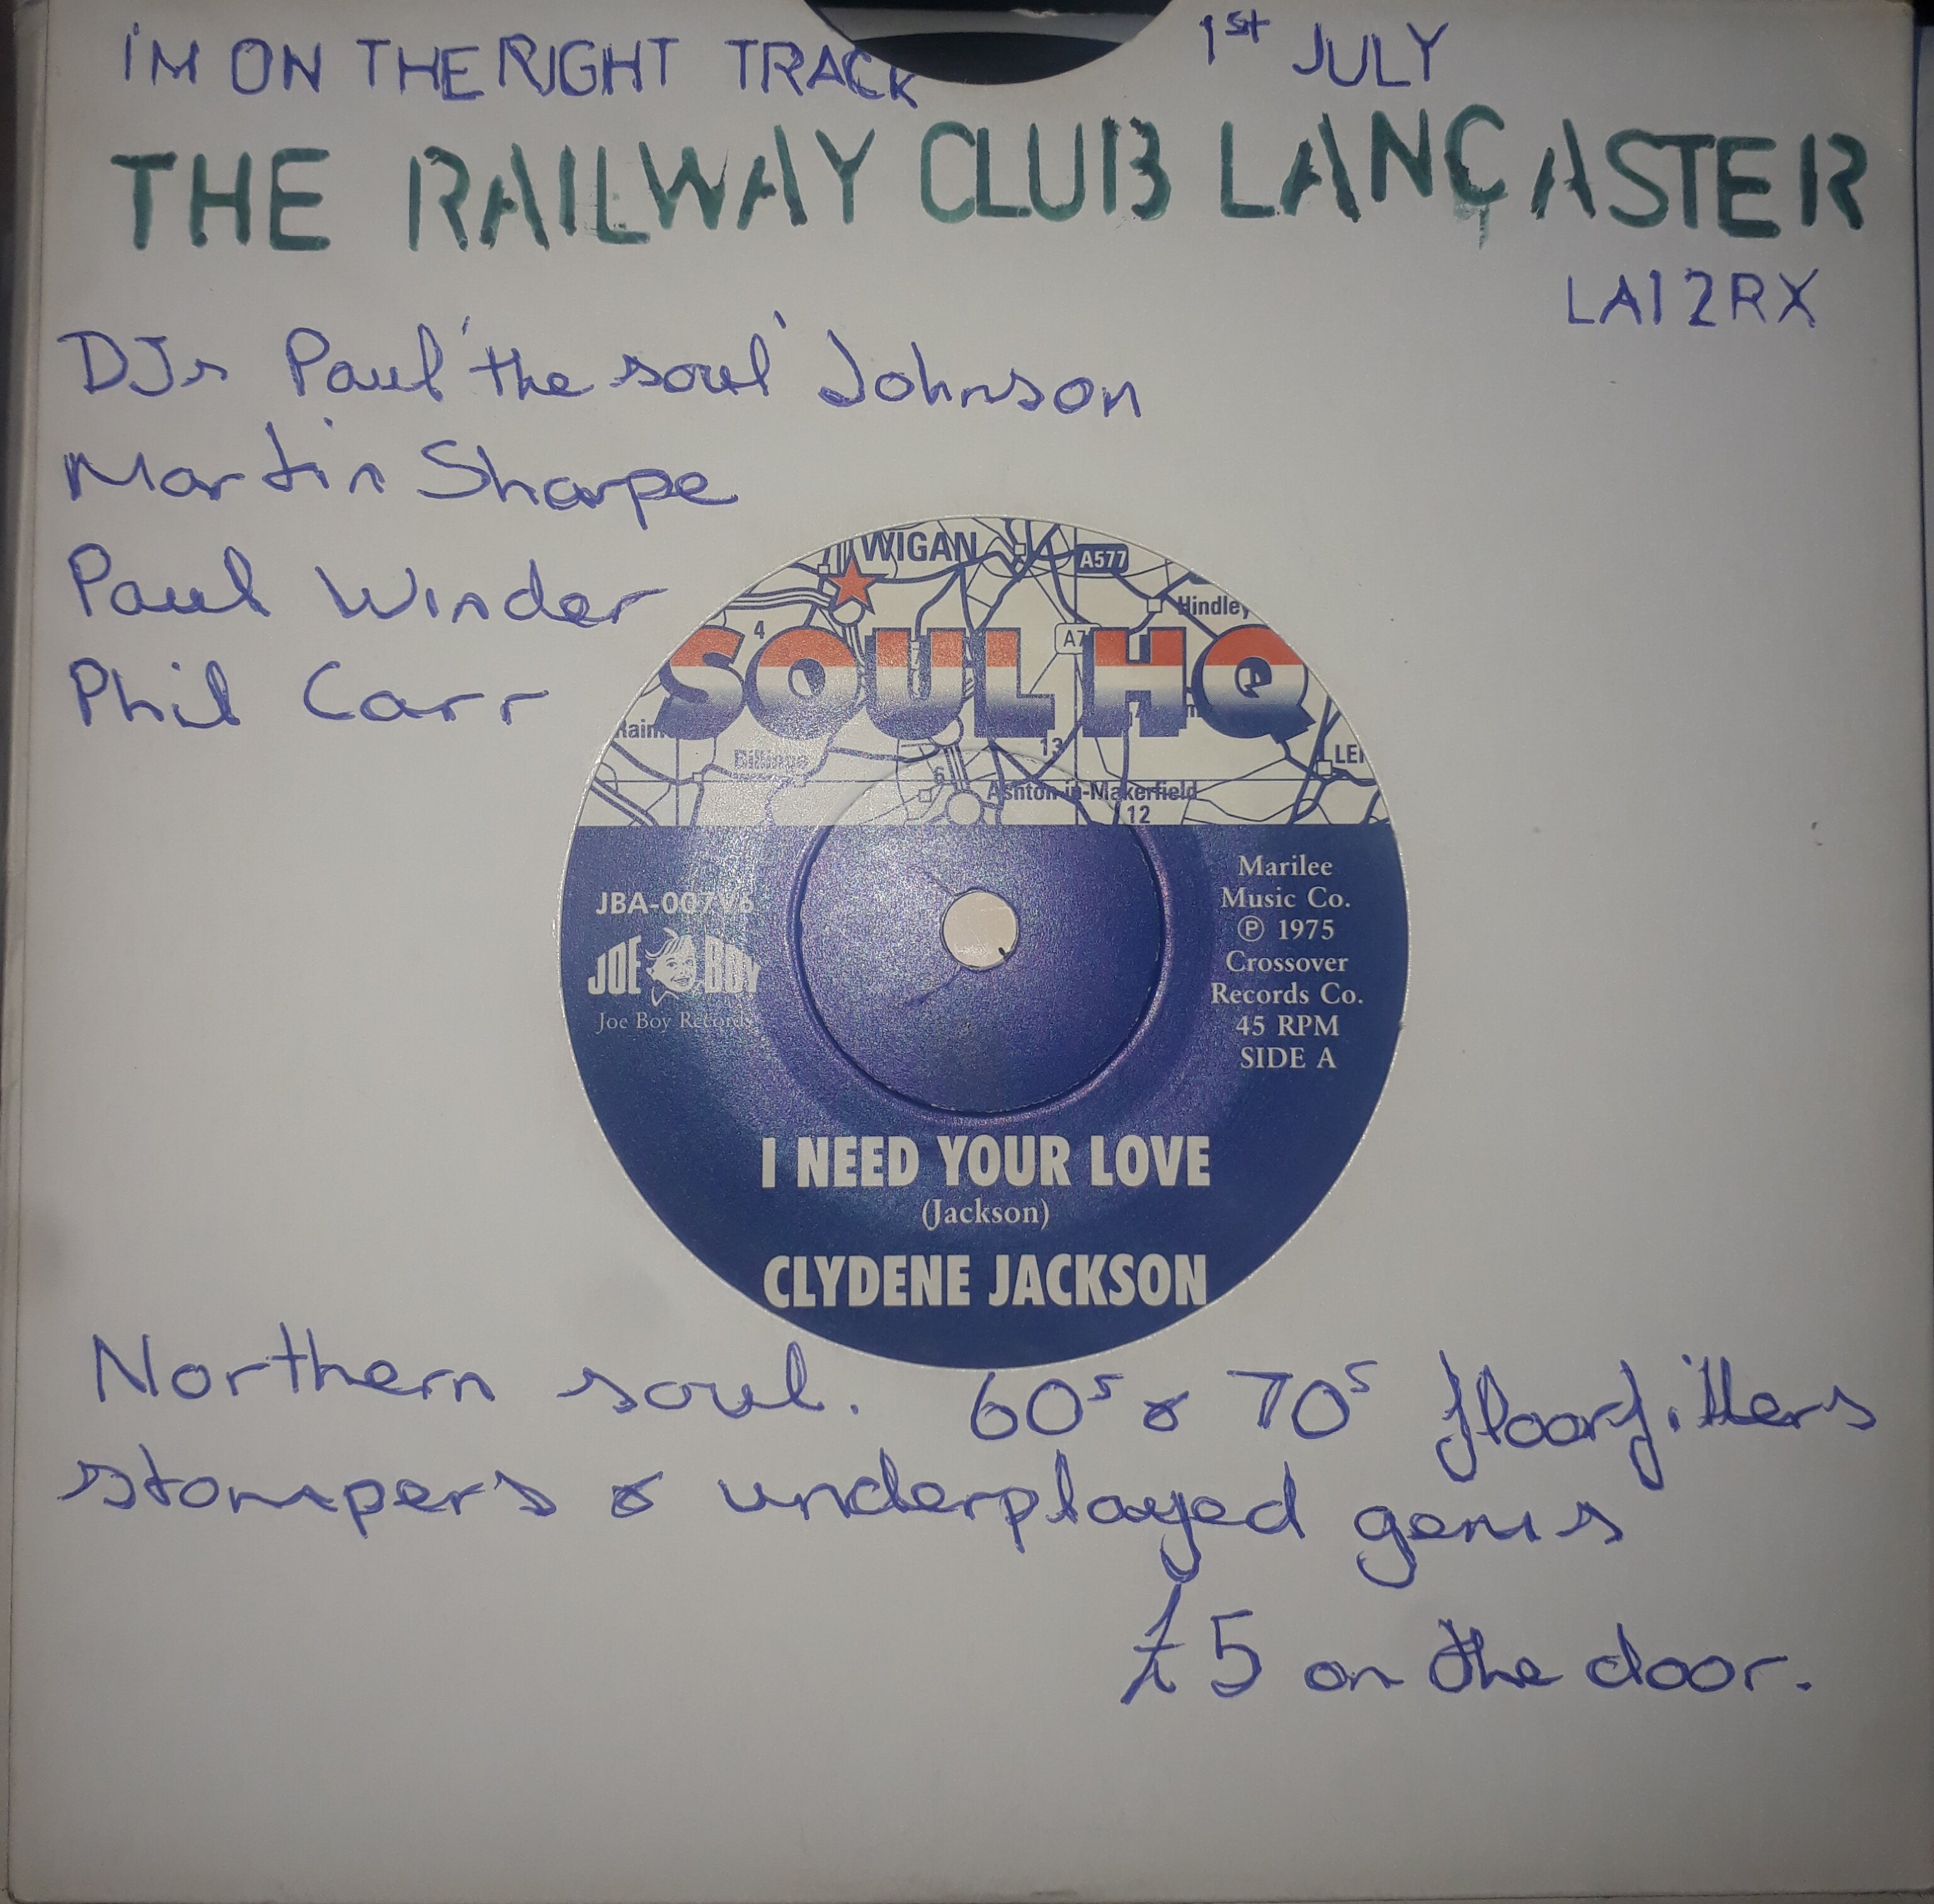 I'M ON THE RIGHT TRACK
1st JULY
THE RAILWAY CLUB LANCASTER
LA1 2RX
DJs Paul 'the soul' Johnson
Martin Sharpe
Paul Winder
Phil Carr
WIGAN
A577
Hindley
4
SOUL HQ
Billinge
13
6
Ashton-in-Makerfield
12
JBA-007
JOE BOY
Joe Boy Records
Marilee
Music Co.
℗ 1975
Crossover
Records Co.
45 RPM
SIDE A
I NEED YOUR LOVE
(Jackson)
CLYDENE JACKSON
Northern soul. 60s & 70s floorfillers
stompers & underplayed gems
£5 on the door.